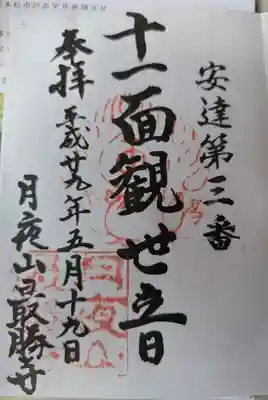 安達第三番
十一面観世音
奉拝 平成廿九年五月十九日
月夜山最勝寺